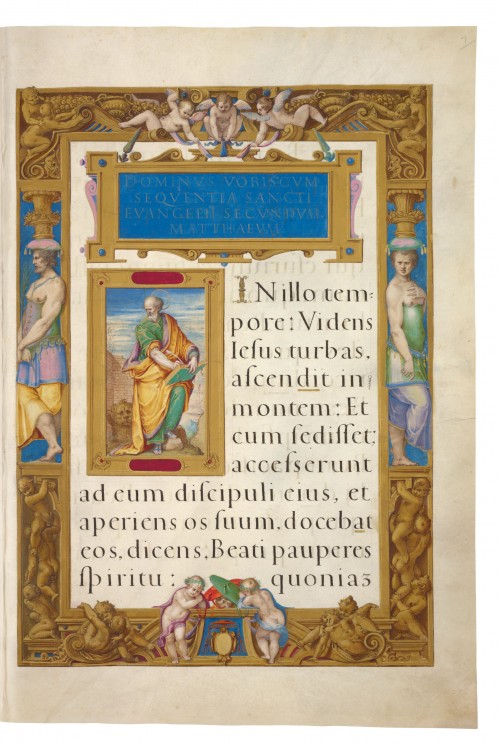 DOMINVS VOBISCVM
SEQVENTIA SANCTI
EVANGELII SECVNDVM
MATTHAEVM
IN illo tem-
pore: Videns
Iesus turbas,
aſcendit in
montem: Et
cum ſediſſet;
acceſserunt
ad eum diſcipuli eius, et
aperiens os ſuum, docebat
eos, dicens, Beati pauperes
ſpiritu: quoniaʒ